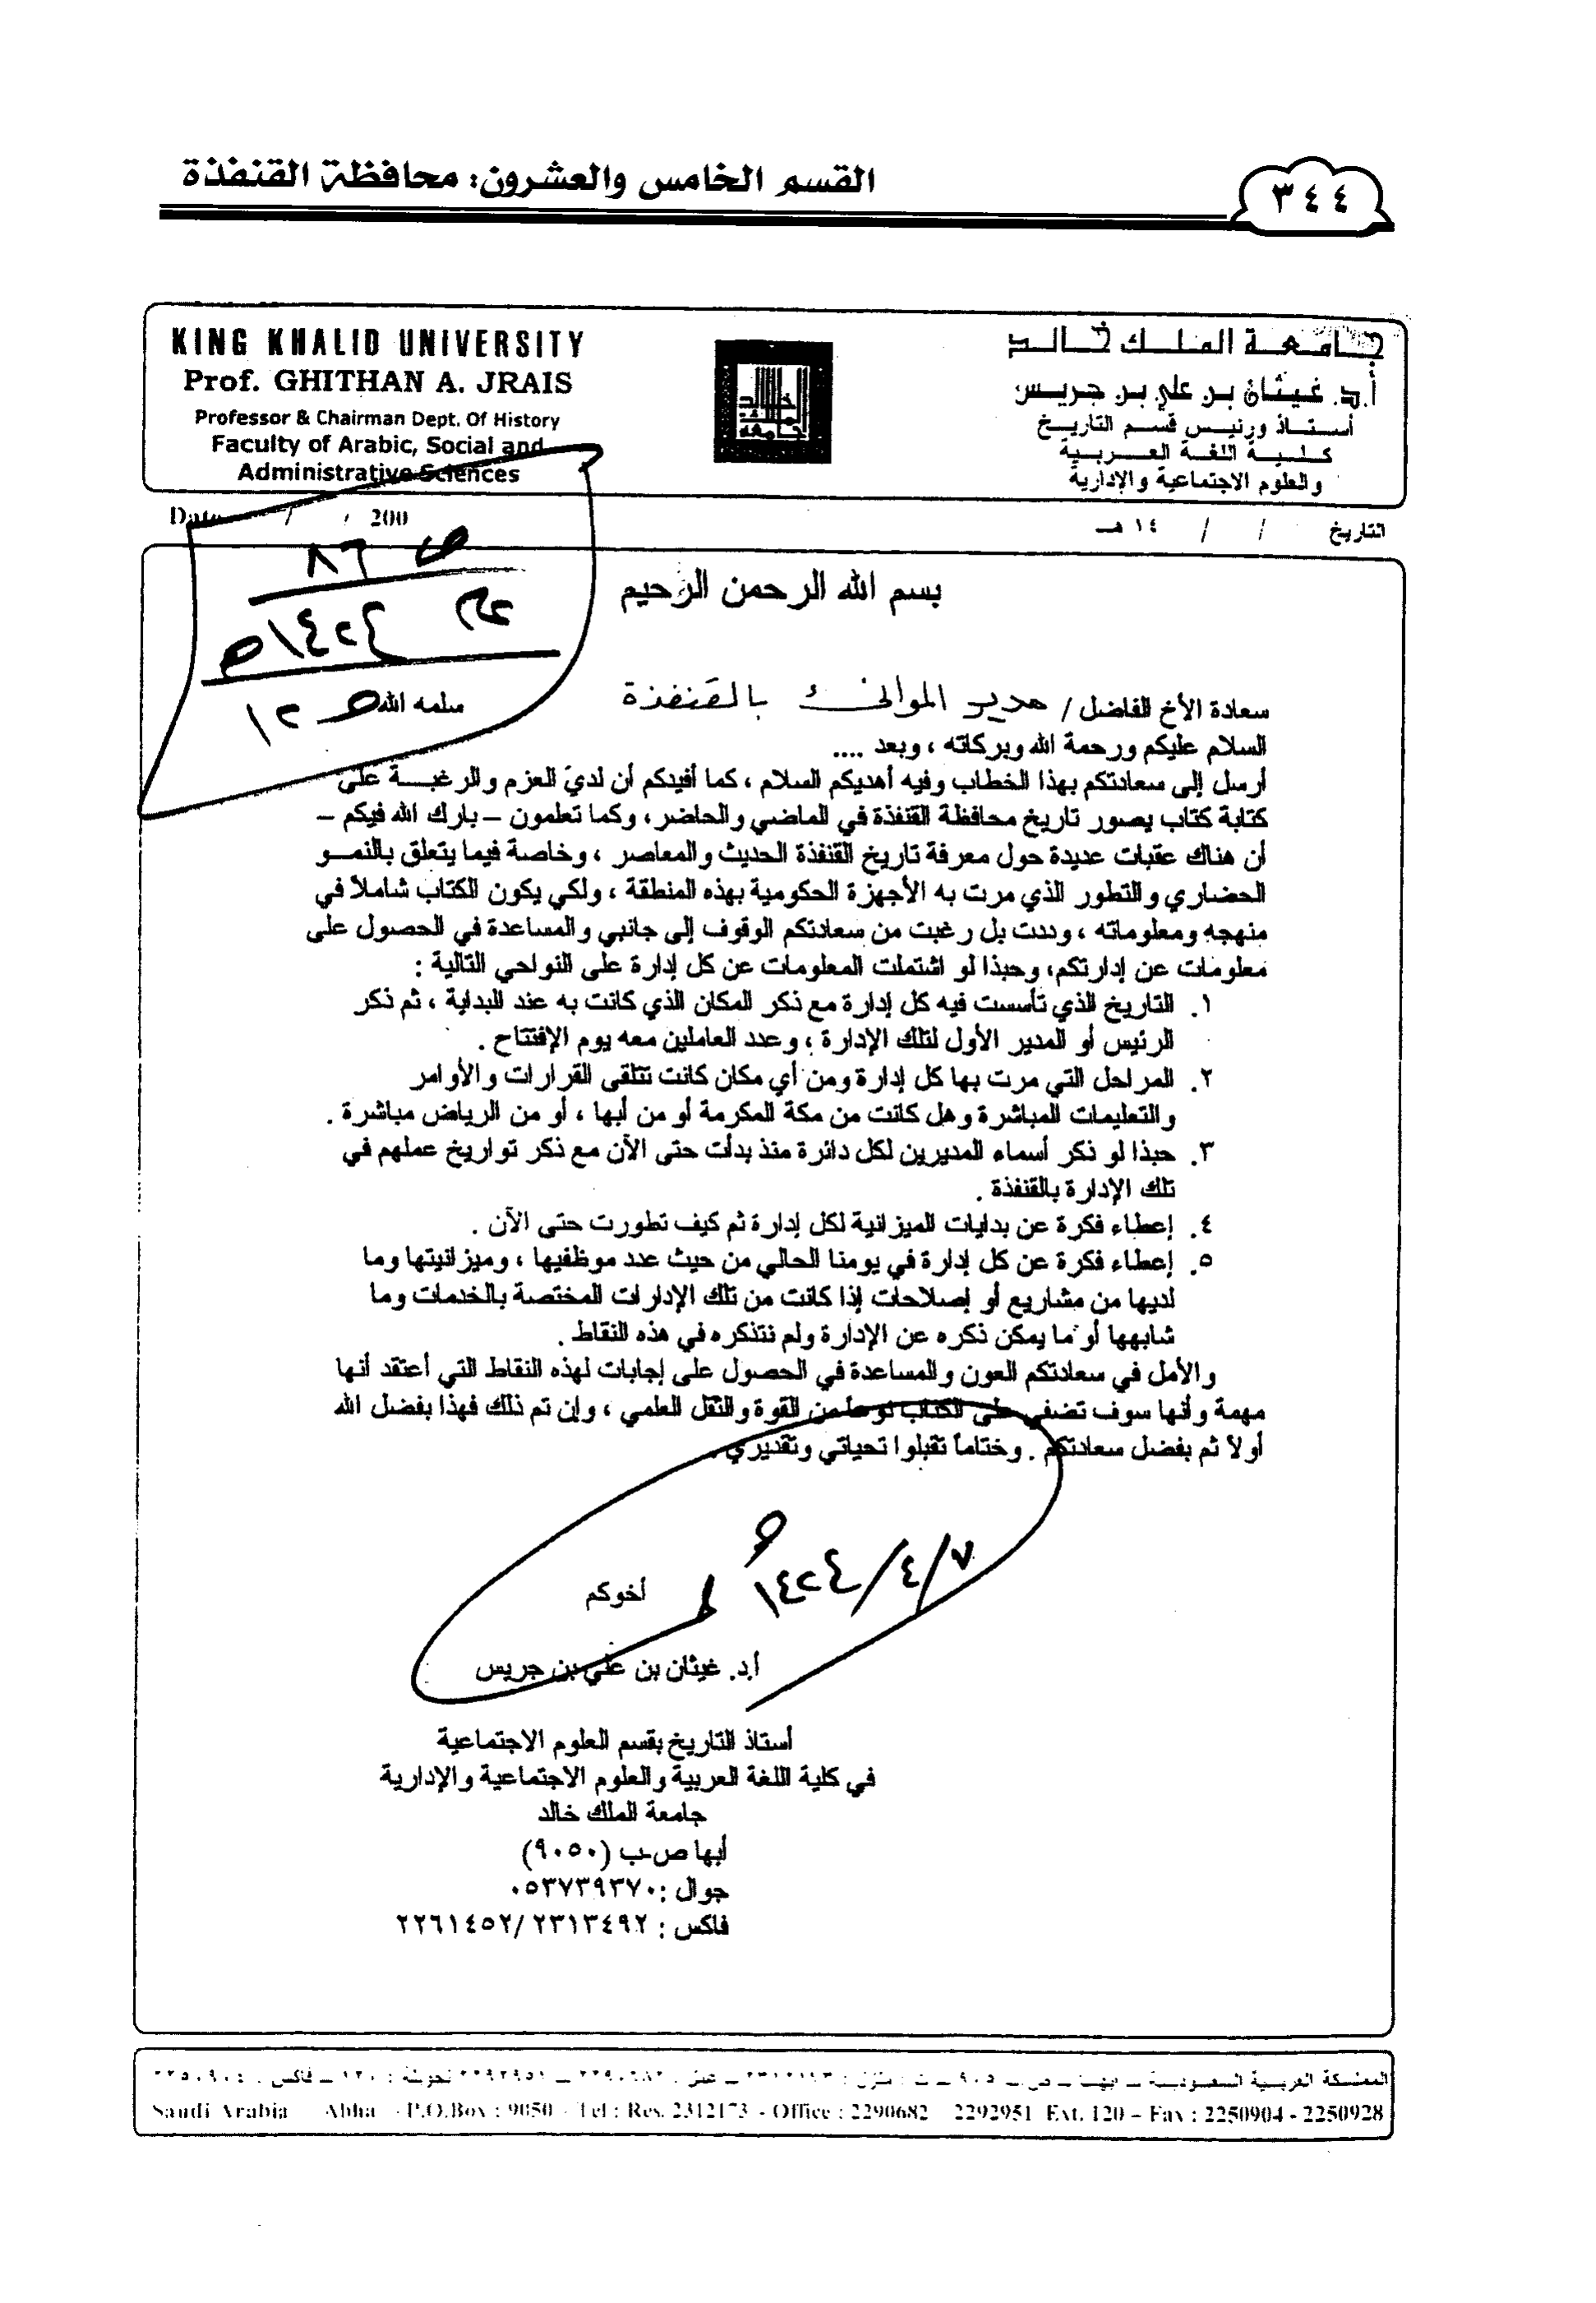 ٣٤٤
القسم الخامس والعشرون: محافظة القنفذة
جامعة الملك خالد
أ.د. غيثان بن علي بن جريس
أستاذ ورئيس قسم التاريخ
كلية اللغة العربية
والعلوم الاجتماعية والإدارية
KING KHALID UNIVERSITY
Prof. GHITHAN A. JRAIS
Professor & Chairman Dept. Of History
Faculty of Arabic, Social and
Administrative Sciences
التاريخ / / ١٤ هـ
Date / / 200
ص ٨٦
١٤٢٤
ص ١٢
بسم الله الرحمن الرحيم
سعادة الأخ الفاضل / مدير الموانئ بالقنفذة سلمه الله
السلام عليكم ورحمة الله وبركاته ، وبعد ....
أرسل إلى سعادتكم بهذا الخطاب وفيه أهديكم السلام ، كما أفيدكم أن لديّ العزم والرغبة على
كتابة كتاب يصور تاريخ محافظة القنفذة في الماضي والحاضر، وكما تعلمون – بارك الله فيكم –
أن هناك عقبات عديدة حول معرفة تاريخ القنفذة الحديث والمعاصر ، وخاصة فيما يتعلق بالنمو
الحضاري والتطور الذي مرت به الأجهزة الحكومية بهذه المنطقة ، ولكي يكون الكتاب شاملاً في
منهجه ومعلوماته ، وددت بل رغبت من سعادتكم الوقوف إلى جانبي والمساعدة في الحصول على
معلومات عن إدارتكم، وحبذا لو اشتملت المعلومات عن كل إدارة على النواحي التالية :
١. التاريخ الذي تأسست فيه كل إدارة مع ذكر المكان الذي كانت به عند البداية ، ثم ذكر
الرئيس أو المدير الأول لتلك الإدارة ، وعدد العاملين معه يوم الإفتتاح .
٢. المراحل التي مرت بها كل إدارة ومن أي مكان كانت تتلقى القرارات والأوامر
والتعليمات المباشرة وهل كانت من مكة المكرمة أو من أبها ، أو من الرياض مباشرة .
٣. حبذا لو ذكر أسماء المديرين لكل دائرة منذ بدأت حتى الآن مع ذكر تواريخ عملهم في
تلك الإدارة بالقنفذة .
٤. إعطاء فكرة عن بدايات الميزانية لكل إدارة ثم كيف تطورت حتى الآن .
٥. إعطاء فكرة عن كل إدارة في يومنا الحالي من حيث عدد موظفيها ، وميزانيتها وما
لديها من مشاريع أو إصلاحات إذا كانت من تلك الإدارات المختصة بالخدمات وما
شابهها أو ما يمكن ذكره عن الإدارة ولم نتذكره في هذه النقاط .
والأمل في سعادتكم العون والمساعدة في الحصول على إجابات لهذه النقاط التي أعتقد أنها
مهمة وأنها سوف تضفي على الكتاب نوعاً من القوة والثقل العلمي ، وإن تم ذلك فهذا بفضل الله
أولاً ثم بفضل سعادتكم . وختاماً تقبلوا تحياتي وتقديري .
٧/٤/١٤٢٤هـ
أخوكم
أ.د. غيثان بن علي بن جريس
أستاذ التاريخ بقسم العلوم الاجتماعية
في كلية اللغة العربية والعلوم الاجتماعية والإدارية
جامعة الملك خالد
أبها ص.ب (٩٠٥٠)
جوال :٠٥٣٧٣٩٣٧٠
فاكس : ٢٢٦١٤٥٢/٢٣١٣٤٩٢
المملكة العربية السعودية – أبها
Saudi Arabia Abha - P.O.Box : 9050 - Tel : Res. 2312173 - Office : 2290682 2292951 Ext. 120 – Fax : 2250904 - 2250928